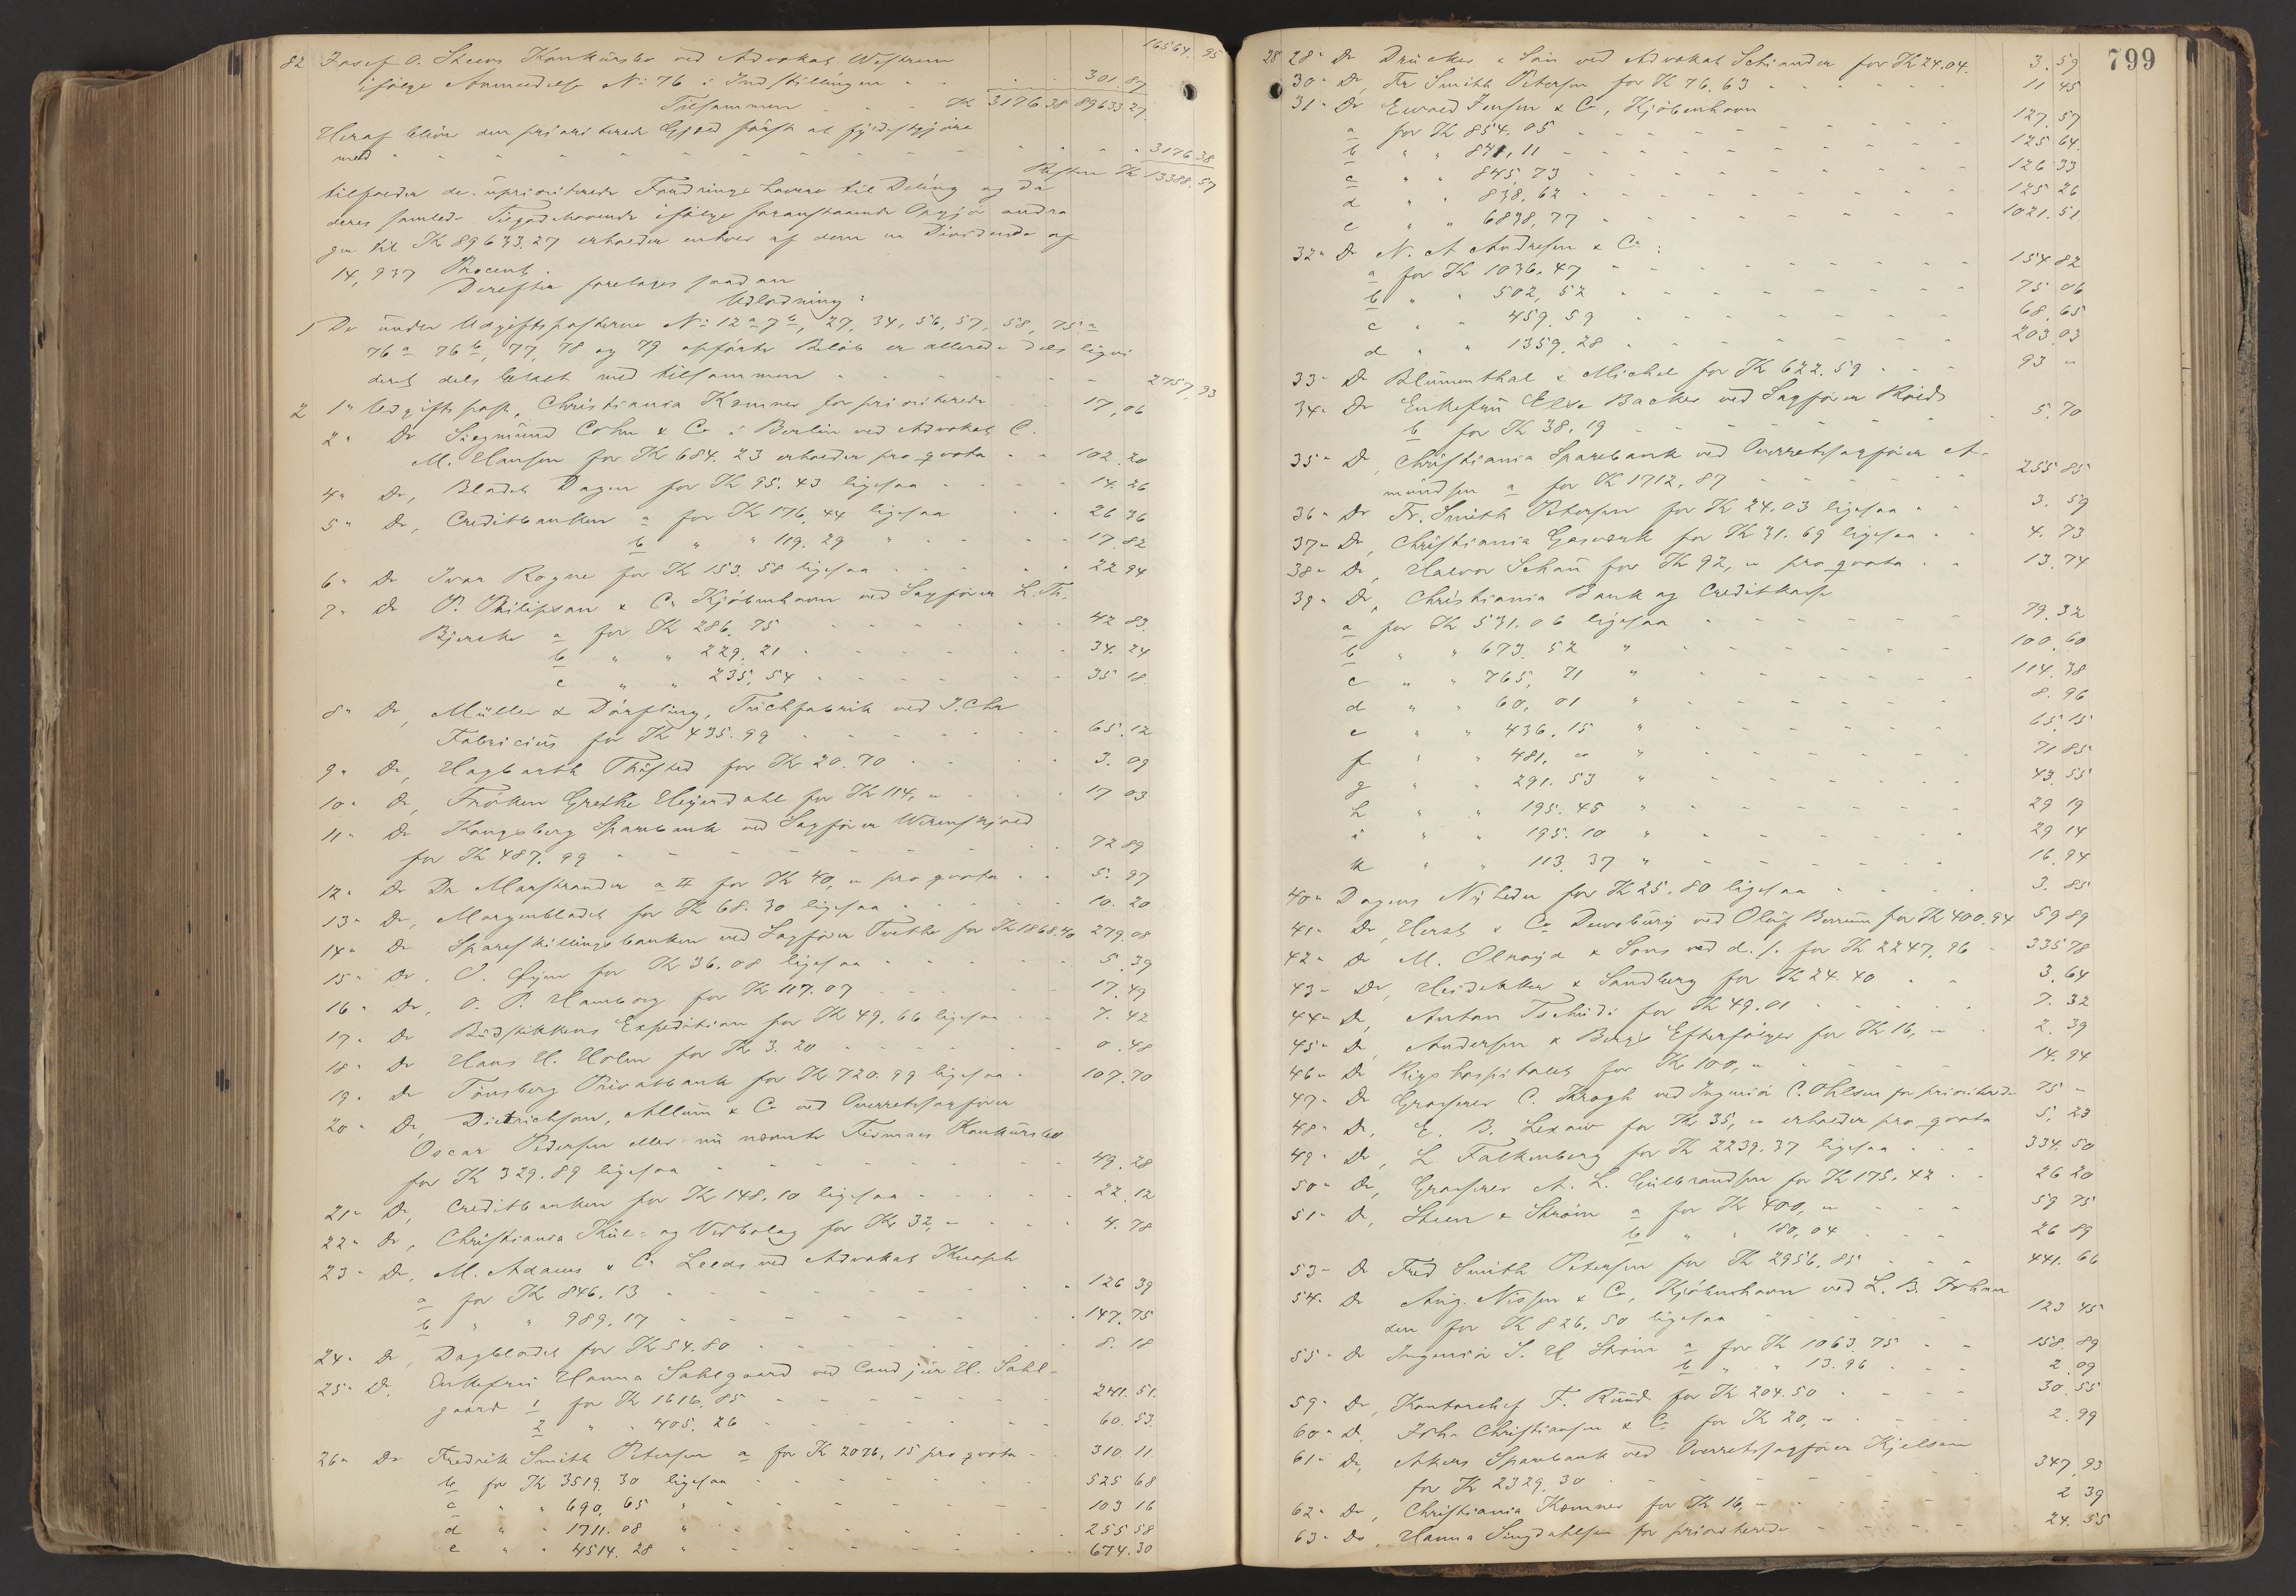 16564. 95
82 Josef O. Steens Konkursbo ved Advokat
ifølge Anmeldelse No 76 i Indstillingen - - 301. 87
Tilsammen - - - Kr 3176 38 89633 27.
Heraf bliver den prioriterede Gjæld først at fyldestgjøre
med - - - - 3176 38
Resten Kr 13388. 57
tilfalder de uprioriterede Fordringshavere til Deling og da
deres samlede Tilgodehavende ifølge foranstaaende Opgjør andra
ger til Kr 89633.27 erholder enhver af dem en Dividende af
14,937 Procent.
Derefter foretages saadan
Udlodning:
1 De under Udgiftsposterne No 12 a 7 b, 27, 34, 56, 57, 58, 75 a
76 a 76 b, 77, 78 og 79 opførte Beløb er allerede dels liqvi
deret dels lukket med tilsammen - - - 2757. 93
2 1" Udgiftspost, Christiania Kæmner for prioriterede 17, 06
2" Do Siegmund Cohn & Co i Berlin ved Advokat C.
M. Hansen for Kr 684. 23 erholder pro qvota - - 102. 20
4" Do, Bladet Dagen for Kr 95. 43 ligesaa - - 14. 26
5" Do, Creditbanken a for Kr 176, 44 ligesaa - - 26 36
b " " 119. 29 " - - 17. 82
6" Do Ivar Rogne for Kr 153. 58 ligesaa - - 22 94
7" Do P. Philipson & Co Kjøbenhavn ved Sagfører L. Th.
Bjercke a for Kr 286. 75 - - 42 83.
b " " 229. 21 - - 34. 24
c " " 235, 54 - - 35 18.
8" Do, Müller & Dörfling, Tuchfabrik ved J. Chr
Fabricius for Kr 435. 99 - - 65. 12
9" Do, Hagbarth Thifsted for Kr 20. 70 - - 3. 09
10" Do, Frøken Grethe Heyerdahl for Kr 114, " - - 17 03
11" Do Kongsberg Sparebank ved Sagfører Werenskjold
for Kr 487. 99 - - 72 89
12" Do Dr Marstrander a II for Kr 40, " pro qvota - - 5. 97
13" Do, Morgenbladet for Kr 68. 30 ligesaa - - 10. 20
14" Do Spareskillingsbanken ved Sagfører Tvethe for Kr 1868.40 279. 08
15" Do. O. Øyen for Kr 36. 08 ligesaa - - 5. 39
16" Do, O. P. Hamborg for Kr 117. 07 - - 17. 49
17" Do Budstikkens Expedition for Kr 49. 66 ligesaa - - 7. 42
18" Do Hans H. Holm for Kr 3. 20 - - 0. 48
19" Do Tønsberg Privatbank for Kr 720. 99 ligesaa - 107. 70
20" Do, Dietrichson, Allum & Co ved Overretssagfører
Oscar Pedersen eller nu nævnte Firmaes Konkursbo
for Kr 329. 89 ligesaa - - 49. 28
21" Do, Creditbanken for Kr 148. 10 ligesaa - - 22. 12
22" Do, Christiania Kul- og Vedbolag for Kr 32, " - - 4. 78
23" Do, M. Adams & Co Leeds ved Advokat
a for Kr 846. 13 - - 126 39
b " " 989. 17 - - 147. 75
24" Do, Dagbladet for Kr 54. 80 - - 8. 18
25" Do. Enkefru Hanna Sahlgaard ved Cand jur H. Sahl-
gaard 1 for Kr 1616. 85 - - 241. 51.
2 " " 405. 26 - - 60. 53.
26" Do Fredrik Smith Petersen a for Kr 2076, 15 pro qvota - - 310. 11.
b for Kr 3519. 30 ligesaa - - 525 68
c " " 690, 65 " - - 103 16
d " " 1711. 08 " - - 255 58
e " " 4514. 28 " - - 674. 30
799
28 28" Do Drucker & Søn ved Advokat Schiander for Kr 24.04. 3. 59
30" Do, Fr Smith Petersen for Kr 76. 63 - - 11 45
31" Do Ewald Jensen & Co, Kjøbenhavn
a for Kr 854. 05 - - 127. 57
b " " 841, 11 - - 125 64.
c " " 845, 73 - - 126 33
d " " 838. 62 - - 125 26
e " " 6838, 77 - - 1021. 51.
32" Do N. A Andresen & Co:
a for Kr 1036. 47 - - 154 82
b " " 502, 52 - - 75 06
c " " 459. 59 - - 68. 65
d " " 1359. 28 - - 203 03
33" Do Blumenthal & Michel for Kr 622. 59 - - 93 "
34" Do Enkefru Elise Backer ved Sagfører
b for Kr 38, 19 - - 5. 70
35" Do, Christiania Sparebank ved Overretssagfører A-
mundsen a for Kr 1712, 87 - - 255 85
36" Do Fr. Smith Petersen for Kr 24.03 ligesaa - - 3. 59
37" Do, Christiania Gasværk for Kr 31. 69 ligesaa - - 4. 73
38" Do, Halvor Schou for Kr 92, " pro qvota - - 13. 74
39" Do, Christiania Bank og Creditkasse
a for Kr 531. 06 ligesaa - - 79. 32
b " " 673. 52 " - - 100. 60
c " " 765, 71 " - - 114. 38
d " " 60, 01 " - - 8. 96
e " " 436. 15 " - - 65. 15
f " " 481, " " - - 71 85
g " " 291. 53 " - - 43. 55
h " " 195. 45 " - - 29 19
i " " 195. 10 " - - 29 14
k " " 113. 37 " - - 16. 94
40" Dagens Nyheder for Kr 25. 80 ligesaa - - 3. 85
41" Do, Herst & Co Dewsbury ved Oluf Borrum for Kr 400. 94 59 89
42" Do M. Olroyd & Sons ved d. s. for Kr 2247, 96 - 335 78
43" Do, Heidekker & Sandberg for Kr 24. 40 - - 3. 64
44" Do, Anton Tschudi for Kr 49. 01 - - 7. 32
45" Do, Andersen & Bergs Efterfølger for Kr 16, " - 2. 39
46" Do Rigshospitalet for Kr 100, " - - 14. 94
47" Do Grosserer C. Krogh ved Ingeniør C. Ohlsen for prioriterede 75 "
48" Do, E. B. Lexow for Kr 35, " erholder pro qvota 5, 23
49" Do, L Falkenberg for Kr 2239. 37 ligesaa - - 334. 50
50" Do, Grosserer A. L. Gulbrandsen for Kr 175. 42 - - 26 20
51" Do, Steen & Strøm a for Kr 400, " - - 59 75
b " " 180, 04 - - 26 89
53" Do Fred Smith Petersen for Kr 2956. 85 - - 441. 66
54" Do Aug. Nissen & Co, Kjøbenhavn ved L. B. Johan
den for Kr 826. 50 ligesaa - - 123 45
55" Do Ingeniør S. H Strøm a for Kr 1063. 75 - - 158. 89
b " " 13. 96 - - 2. 09
59" Do, Kontorchef F. Ruud for Kr 204. 50 - - 30. 55
60" Do, Johs Christiansen & Co for Kr 20, " - - 2. 99
61" Do, Akers Sparebank ved Overretssagfører Kjelsen
for Kr 2329. 30 - - 347. 93
62" Do, Christiania Kæmner for Kr 16, " - - 2 39
63" Do, Hanna Singdahlsen for prioriterede - - 24. 55